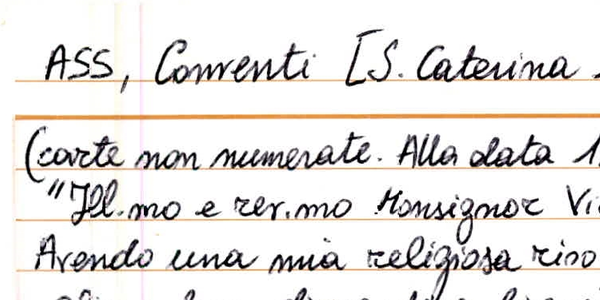 ASS, Conventi [S. Caterina
(carte non numerate. Alla data 1
"Ill.mo e rev.mo Monsignor Vi
Avendo una mia religiosa